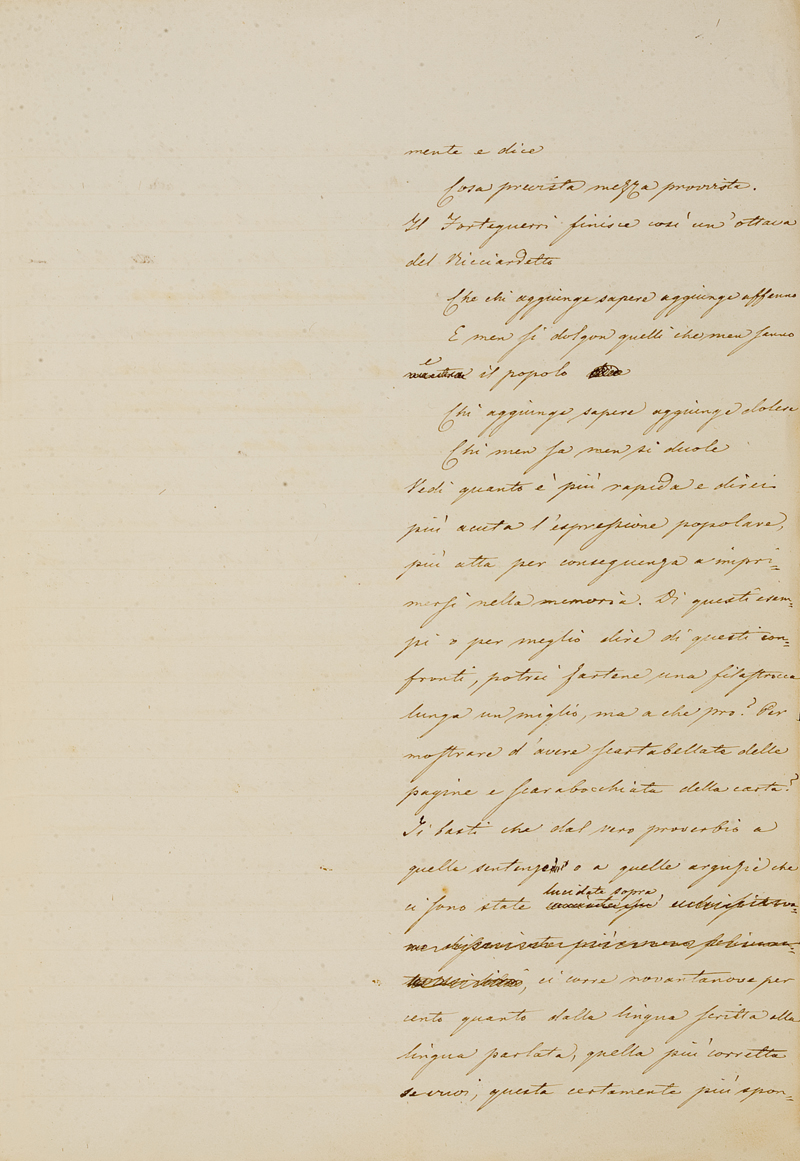 mente e dice
Cosa prevista mezza provvista.
Il Forteguerri finisce così un'ottava
del Ricciardetto
Che chi aggiunge sapere aggiunge affanno
E men si dolgon quelli che men sanno
e
il popolo
Chi aggiunge sapere aggiunge dolore
Chi men sa men si duole
Vedi quanto è più rapida e direi
più acuta l'espressione popolare,
più atta per conseguenza a impri=
mersi nella memoria. Di questi esem=
pi o per meglio dire di questi con=
fronti, potrei fartene una filastrocca
lunga un miglio, ma a che pro? Per
mostrare d'avere scartabellate delle
pagine e scarabocchiata della carta?
Ti basti che dal vero proverbio a
quelle sentenze o a quelle arguzie che
lucidate sopra,
ci sono state
ci corre novantanove per
cento quanto dalla lingua scritta alla
lingua parlata, quella più corretta
se vuoi, questa certamente più spon=